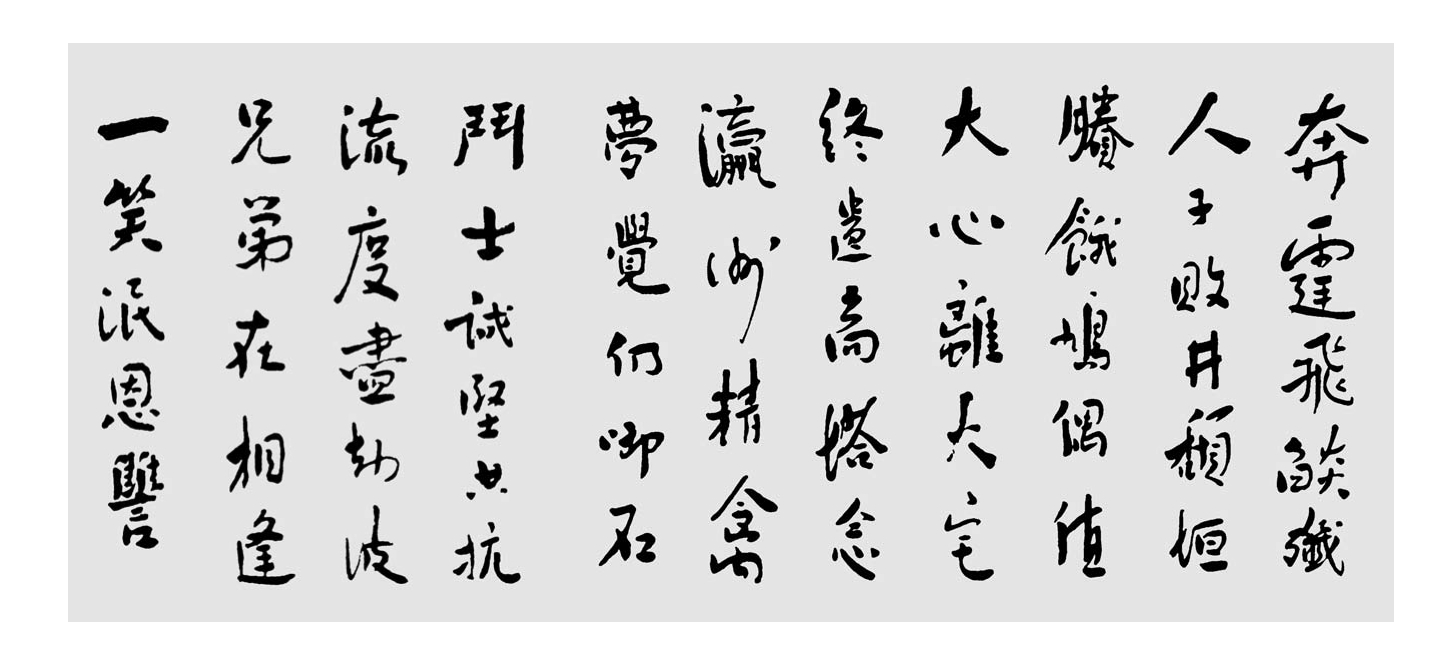 奔霆飛𦦨殲
人子败井頹垣
賸餓鳩偶值
大心離大宅
終遺高塔念
瀛洲精禽
夢覺仍啣石
鬥士誠堅共抗
流度盡劫波
兄弟在相逢
一笑泯恩讐